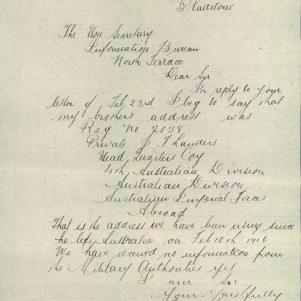 Gladstone
The Hon Secretary
Information Bureau
North Terrace
Dear Sir
In reply to your
letter of Feb 23rd I beg to say that
my brothers address was
Reg No 2038
Private J T Landers
Head Quarters Coy
4th Australian Division
Australian Division
Australian Imperial Forces
Abroad
That is the address we have been using since
he left Australia on Feb 10th 1916
We have received no information from
the Military Authorities yet
I am Sir
Yours Respectfully